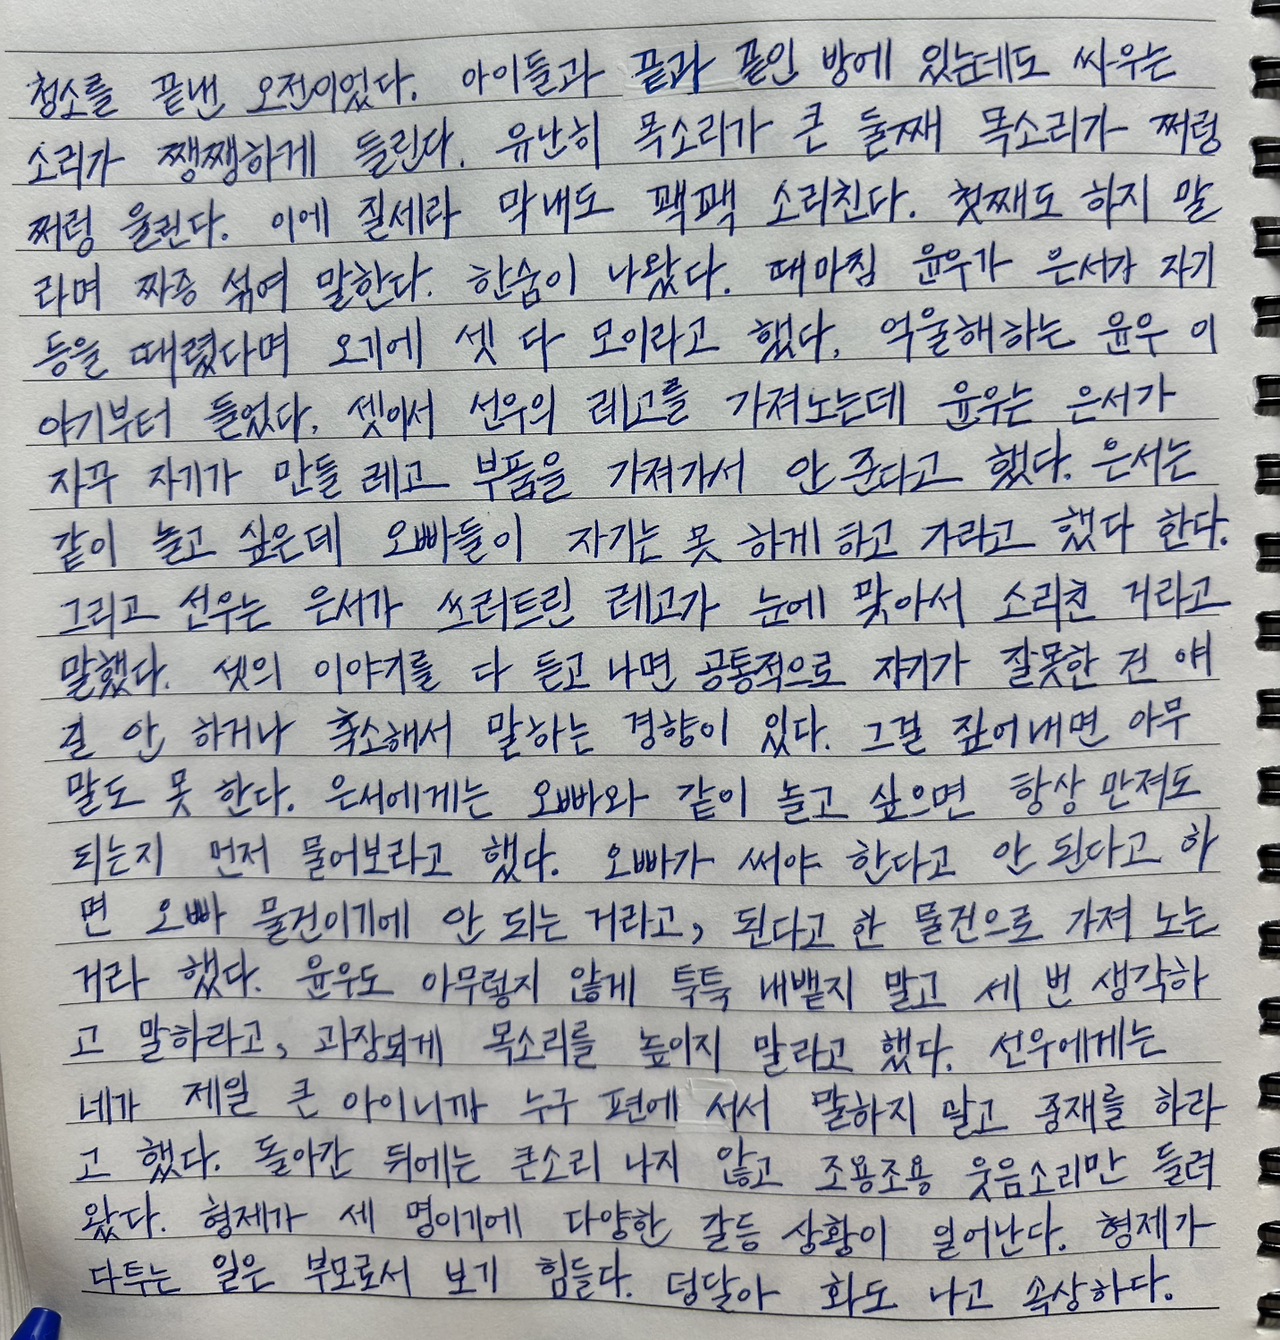 청소를 끝낸 오전이었다. 아이들과 끝과 끝인 방에 있는데도 싸우는
소리가 쨍쨍하게 들린다. 유난히 목소리가 큰 둘째 목소리가 쩌렁
쩌렁 울린다. 이에 질세라 막내도 꽥꽥 소리친다. 첫째도 하지 말
라며 짜증 섞여 말한다. 한숨이 나왔다. 때마침 윤우가 은서가 자기
등을 때렸다며 오기에 셋 다 모이라고 했다. 억울해하는 윤우 이
야기부터 들었다. 셋이서 선우의 레고를 가져노는데 윤우는 은서가
자꾸 자기가 만들 레고 부품을 가져가서 안 준다고 했다. 은서는
같이 놀고 싶은데 오빠들이 자기는 못 하게 하고 가라고 했다 한다.
그리고 선우는 은서가 쓰러트린 레고가 눈에 맞아서 소리친 거라고
말했다. 셋의 이야기를 다 듣고 나면 공통적으로 자기가 잘못한 건 얘
길 안 하거나 축소해서 말하는 경향이 있다. 그걸 짚어내면 아무
말도 못 한다. 은서에게는 오빠와 같이 놀고 싶으면 항상 만져도
되는지 먼저 물어보라고 했다. 오빠가 써야 한다고 안 된다고 하
면 오빠 물건이기에 안 되는 거라고, 된다고 한 물건으로 가져 노는
거라 했다. 윤우도 아무렇지 않게 툭툭 내뱉지 말고 세 번 생각하
고 말하라고, 과장되게 목소리를 높이지 말라고 했다. 선우에게는
네가 제일 큰 아이니까 누구 편에 서서 말하지 말고 중재를 하라
고 했다. 돌아간 뒤에는 큰소리 나지 않고 조용조용 웃음소리만 들려
왔다. 형제가 세 명이기에 다양한 갈등 상황이 일어난다. 형제가
다투는 일은 부모로서 보기 힘들다. 덩달아 화도 나고 속상하다.